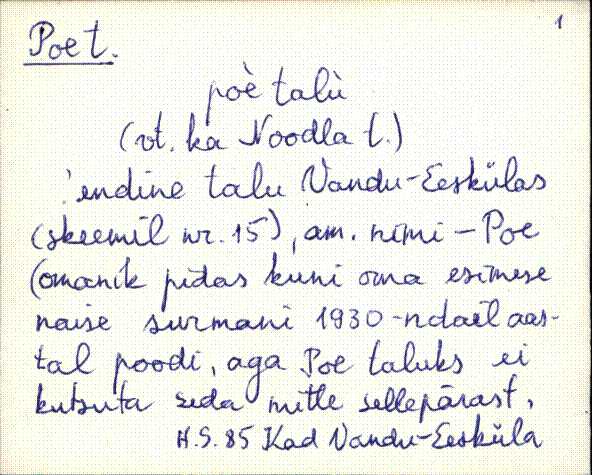 1
Poe t.
poè talù
(vt. ka Noodla t.)
'endine talu Vandu-Eeskülas
(skeemil nr. 15), am. nimi - Poe
(omanik pidas kuni oma esimese
naise surmani 1930-ndail aas-
tal poodi, aga Poe taluks ei
kutsuta seda mitte sellepärast,
H.S. 85 Kad Vandu-Eesküla